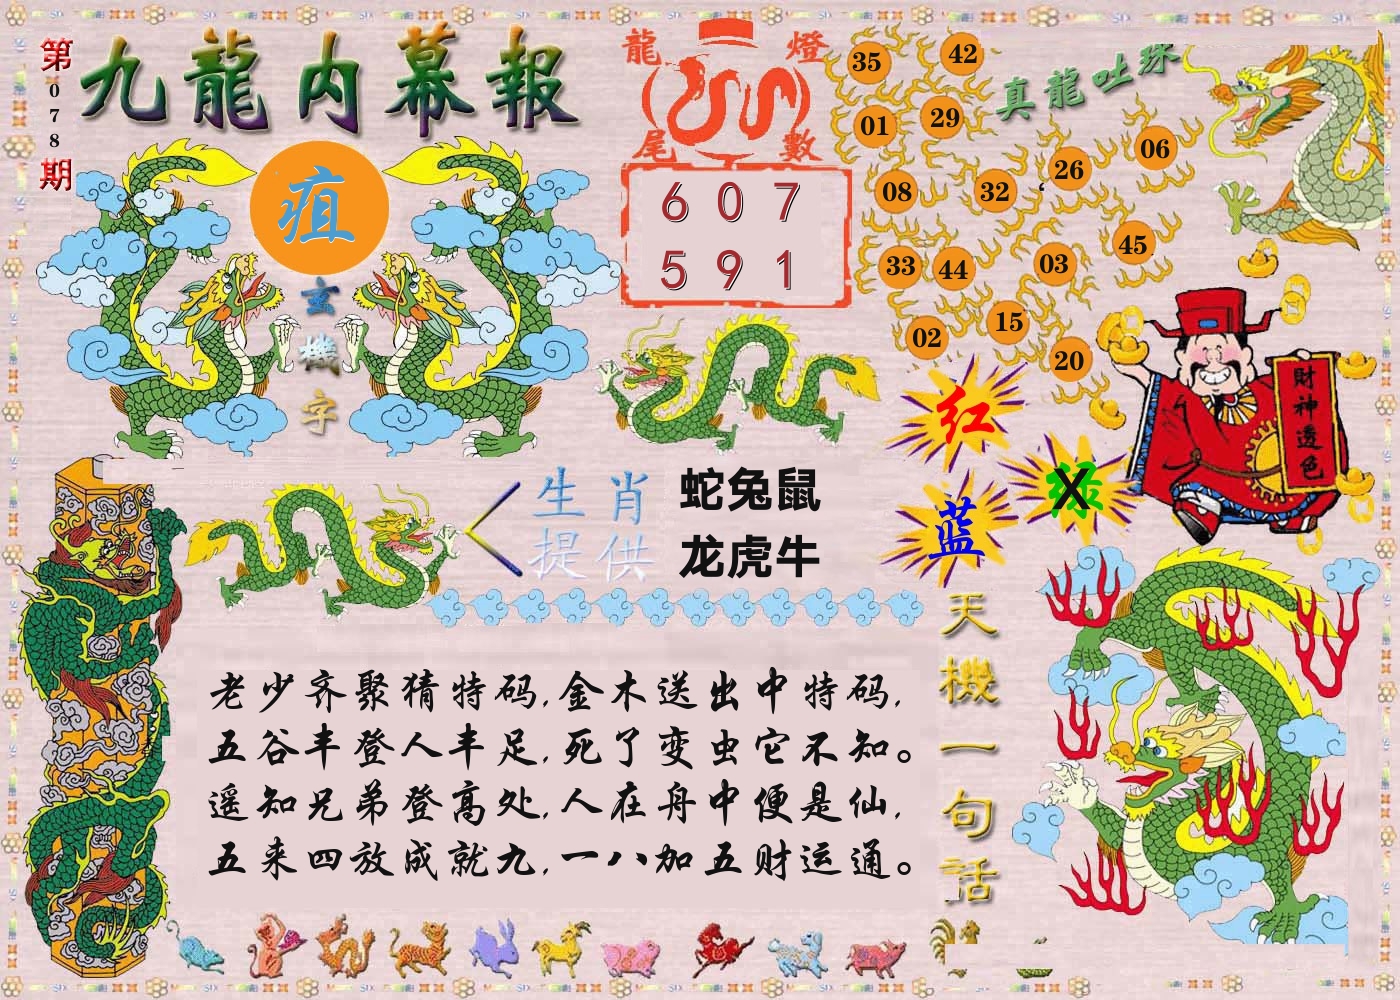 第078期
九龍内幕報
疽
玄機字
龍燈尾數
607
591
真龍吐珠
35 42
01 29
08 32 26 06
33 44 03 45
02 15 20
財神透色
红
绿
X
蓝
生肖提供
蛇兔鼠
龙虎牛
天機一句話
老少齐聚猜特码,金木送出中特码,
五谷丰登人丰足,死了变虫它不知。
遥知兄弟登高处,人在舟中便是仙,
五来四放成就九,一八加五财运通。